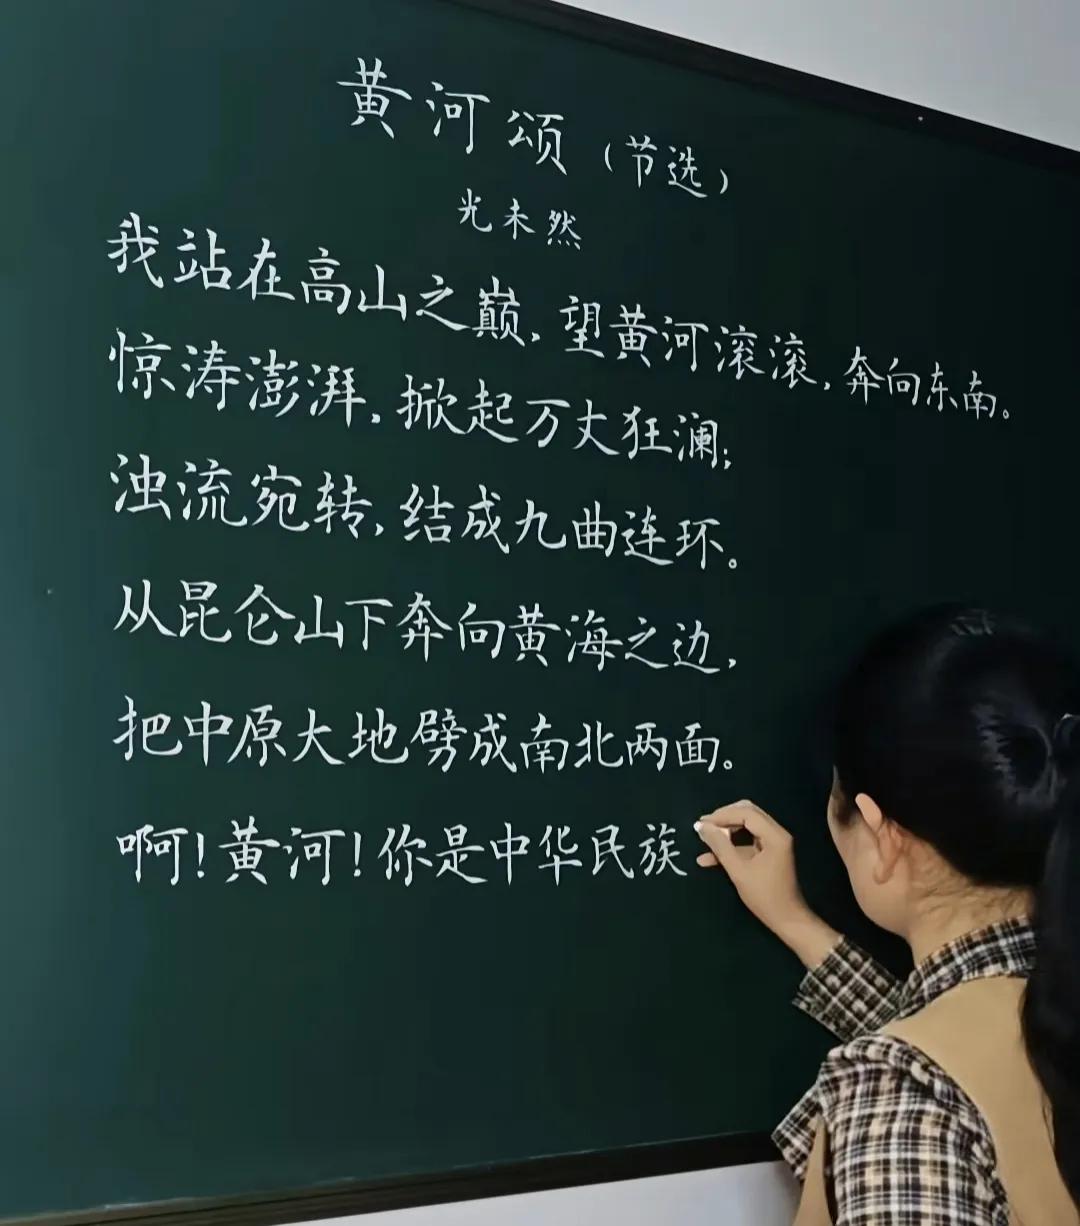 黄河颂（节选）
光未然
我站在高山之巅，望黄河滚滚，奔向东南。
惊涛澎湃，掀起万丈狂澜；
浊流宛转，结成九曲连环。
从昆仑山下奔向黄海之边，
把中原大地劈成南北两面。
啊！黄河！你是中华民族